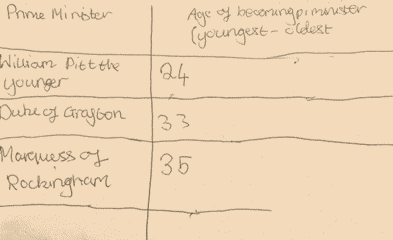 Prime Minister
Age of becoming p.minister
(youngest - oldest
William Pitt the
younger
24
Duke of Grafton
33
Marquess of
Rockingham
35